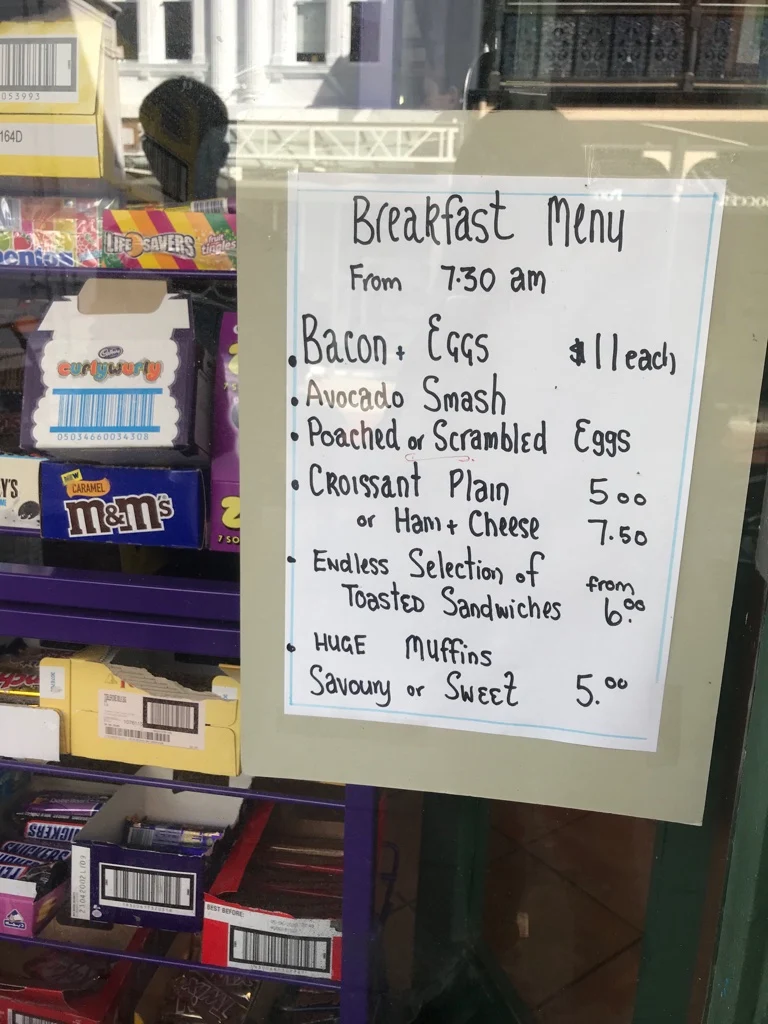 053993
164D
mentos
LIFE SAVERS
fruit
tingles
Cadbury
curlywurly
05034660034308
NEW
CARAMEL
m&m's
SNICKERS
BEST BEFORE:
Breakfast Menu
From 7.30 am
• Bacon + Eggs $11 each
• Avocado Smash
• Poached or Scrambled Eggs
• Croissant Plain 5 00
or Ham + Cheese 7.50
• Endless Selection of from
Toasted Sandwiches 6.00
• HUGE Muffins
Savoury or Sweet 5.00